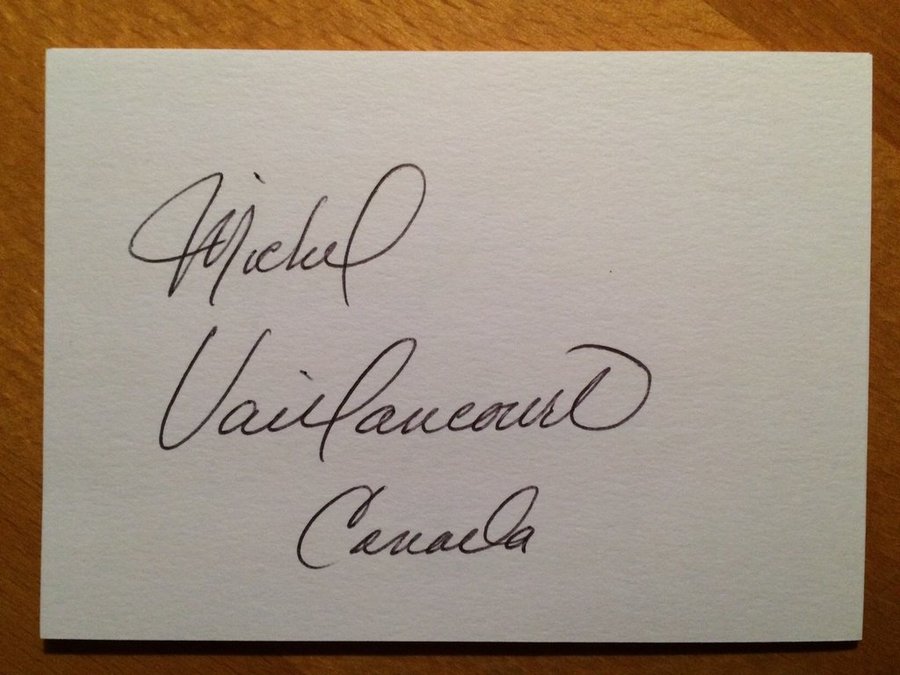 Michel
Vaillancourt
Canada